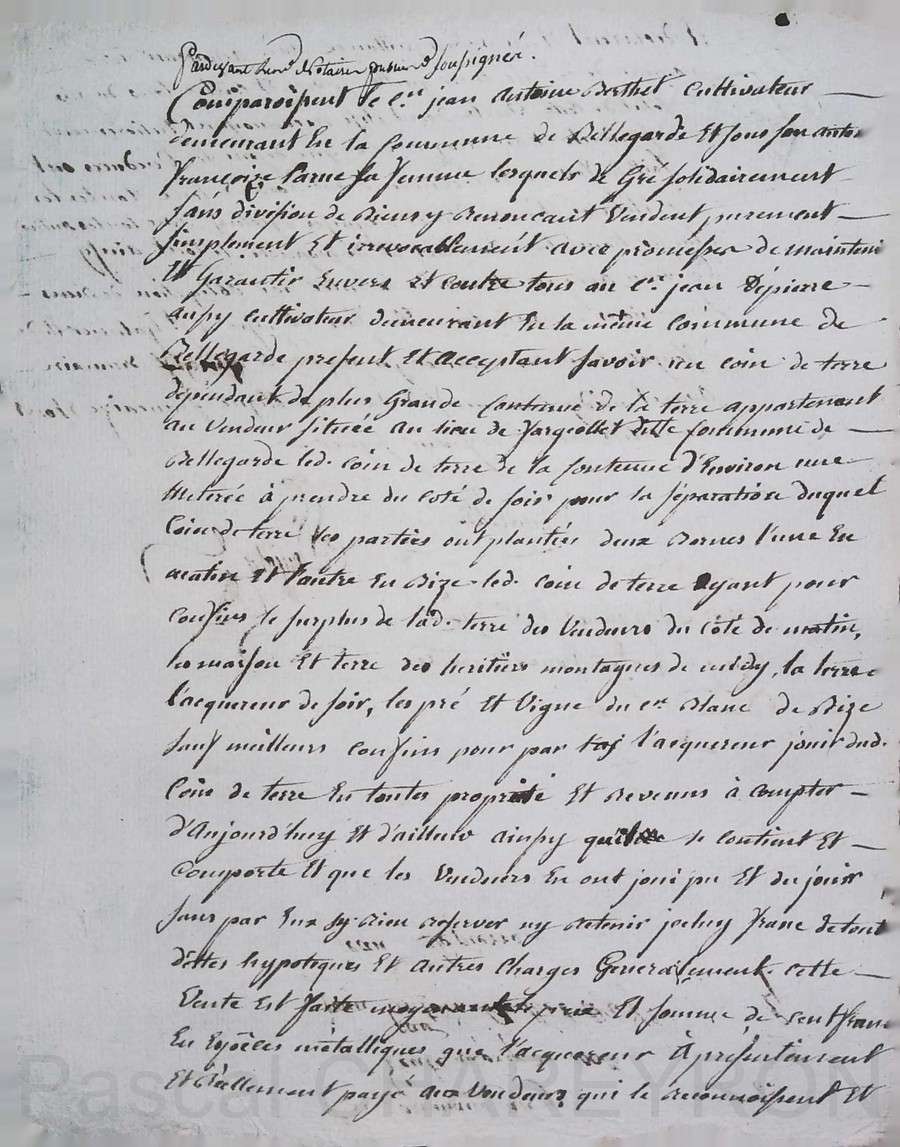 Pardevant Notaire soussigné.
Comparoissent le Cn. jean Antoine Berthet Cultivateur
demeurant En la Commune de Bellegarde Et sous son autor
françoise sa femme lesquels de Gré solidairement
sans division de Biens y Renoncant Vendent purement
simplement Et irrevocablement avec promesse de mainteni
Et Garantir Envers Et contre tous au Cn. jean Dépierre
aussy cultivateur demeurant En la même Commune de
Bellegarde present Et acceptant savoir un coin de terre
dépendant de plus Grande Contenue de la terre appartenant
au Vendeur située au lieu de ditte Commune de
Bellegarde led. coin de terre de la Contenue d'Environ une
Metrée à prendre du coté de soir pour la séparation duquel
Coin de terre les parties ont plantées deux Bornes l'une En
matin Et l'autre En Bize led. coin de terre Ayant pour
confins le surplus de lad. terre des Vendeurs du coté de matin,
les maison Et terre des heritiers montagnes de midy, la terre
l'acquereur de soir, les pré Et Vigne du Cn. Blanc de Bize
sauf meilleurs confins pour par l'acquereur jouir dud.
Coin de terre En toutes propriété Et Revenus à compter
d'Aujourd'huy Et d'ailleurs ainssy se contient Et
Comporte Et que les Vendeurs En ont joui pu Et du jouir
sans par Eux sy Rien Reserver ny Retenir jceluy franc de tout
dettes hypoteques Et Autres Charges Generalement. Cette
Vente Est faite moyennant prix Et somme de Cent franc
En Espèces métalliques que l'acquereur A présentement
Et Réellement payé aux Vendeurs qui le Reconnoissent Et
Pascal CHAREYRON